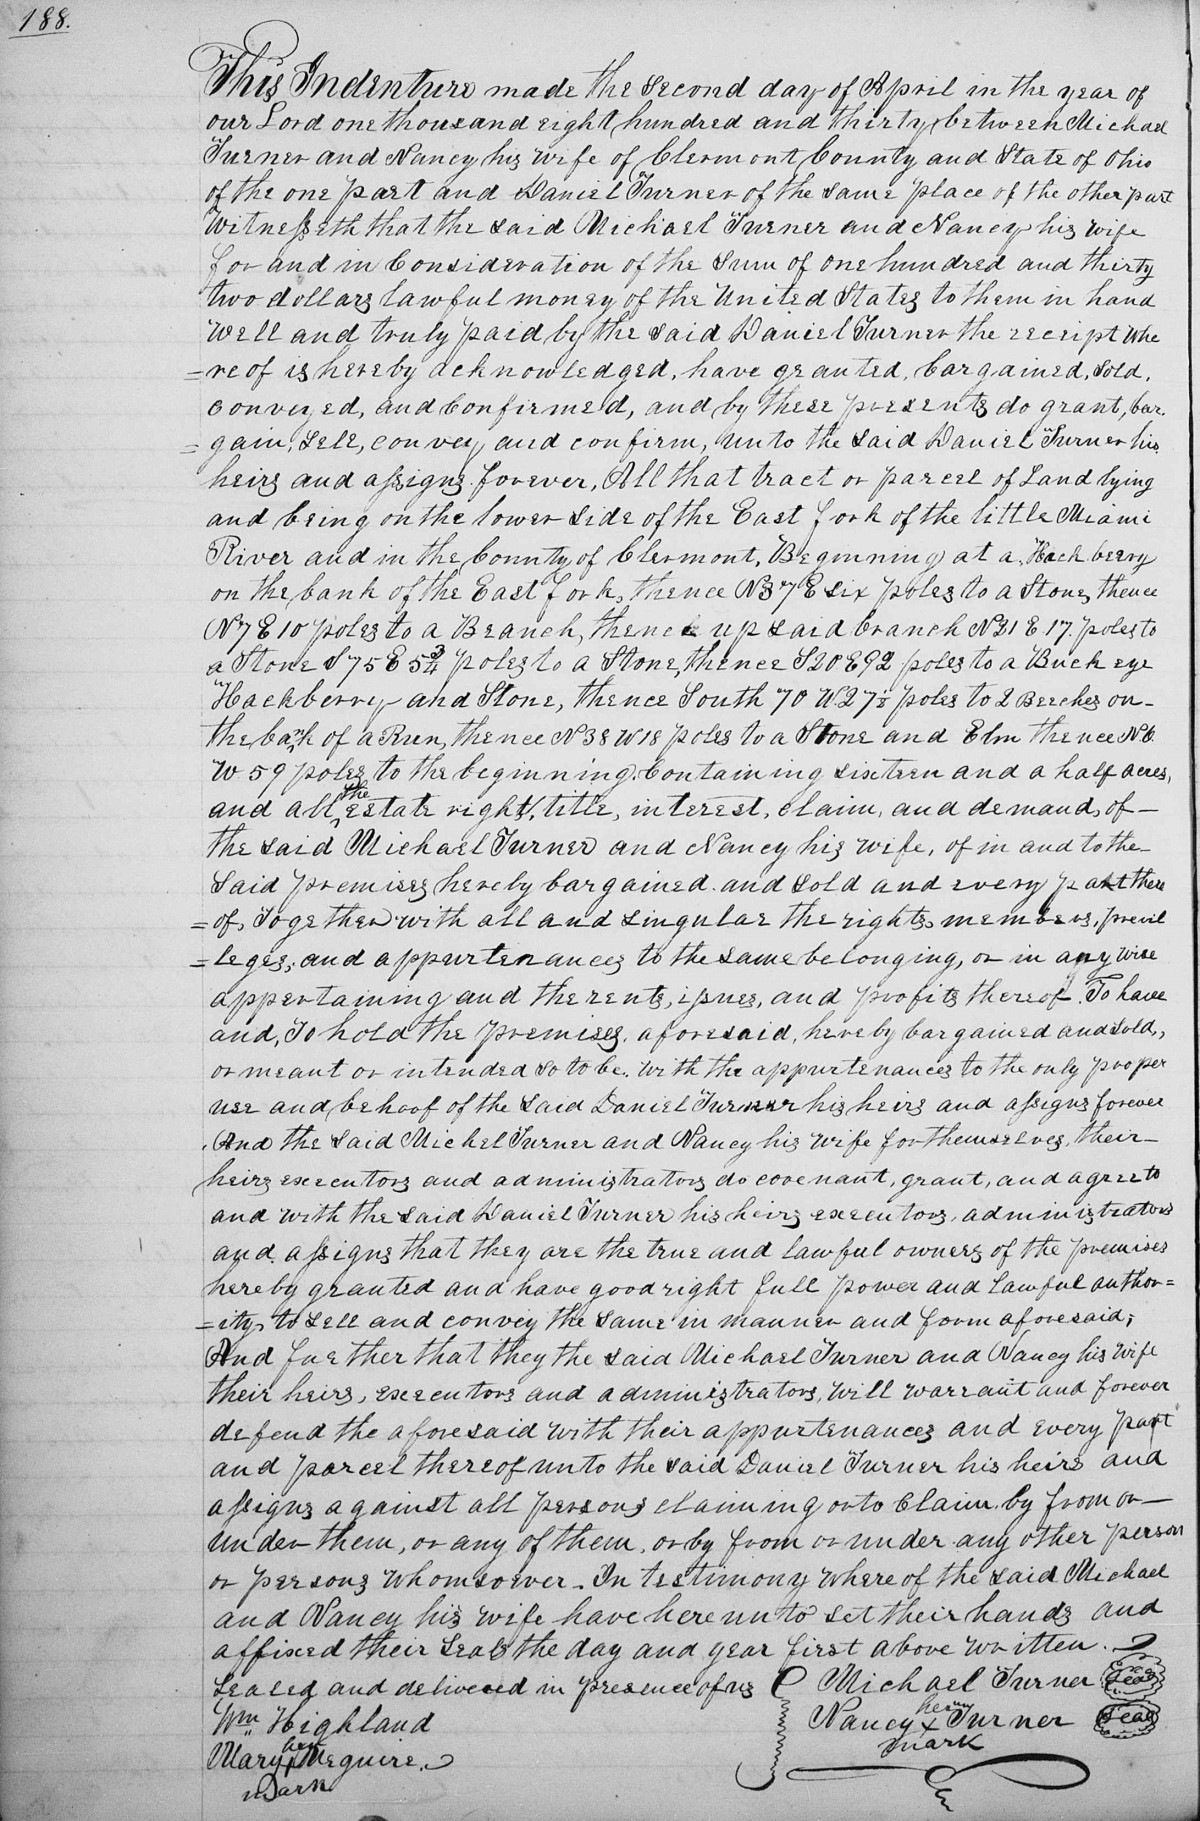 188.
This Indenture made the Second day of April in the year of
our Lord one thousand eight hundred and thirty between Michael
Turner and Nancy his wife of Clermont County and State of Ohio
of the one part and Daniel Turner of the same place of the other part
Witnesseth that the said Michael Turner and Nancy his wife
for and in Consideration of the Sum of one hundred and thirty
two dollars lawful money of the United States to them in hand
well and truly paid by the said Daniel Turner the receipt whe
=reof is hereby acknowledged, have granted, bargained, sold,
conveyed, and Confirmed, and by these presents do grant, bar
=gain, sell, convey, and confirm, unto the said Daniel Turner his
heirs and assigns forever, All that tract or parcel of Land lying
and being on the lower side of the East fork of the little Miami
River and in the County of Clermont, Beginning at a Hackberry
on the bank of the East fork, thence N37E six poles to a Stone, thence
N7E10 poles to a Branch, thence up said branch N31E17. poles to
a Stone S75E5¾ poles to a Stone, thence S20E92 poles to a Buckeye
Hackberry and Stone, thence South 70 W27½ poles to 2 Beeches on-
the bank of a Run, thence N38W18 poles to a Stone and Elm thence N6
W59 poles to the beginning. Containing sixteen and a half acres,
and all the estate right, title, interest, claim, and demand, of-
the said Michael Turner and Nancy his wife, of in and to the-
said premises hereby bargained and sold and every part there
=of, Together with all and singular the rights members, previl
=leges, and appurtenances to the same belonging, or in any wise
appertaining and the rents, issues, and profits thereof. To have
and, To hold the premises, aforesaid, hereby bargained and sold,,
or meant or intended so to be. With the appurtenances to the only proper
use and behoof of the said Daniel Turner his heirs and assigns forever
. And the said Michel Turner and Nancy his wife for themselves, their-
heirs executors and administrators do covenant, grant, and agree to
and with the said Daniel Turner his heirs executors, administrators
and assigns that they are the true and lawful owners of the premises
hereby granted and have good right full power and lawful author=
=ity, to sell and convey the same in manner and form aforesaid;
And further that they the said Michael Turner and Nancy his wife
their heirs, executors and administrators, will warrant and forever
defend the aforesaid with their appurtenances and every part
and parcel thereof unto the said Daniel Turner his heirs and
assigns against all persons claiming or to Claim by from or-
under them, or any of them, or by from or under any other person
or persons whomsoever. In testimony whereof the said Michael
and Nancy his wife have hereunto set their hands and
affixed their Seals the day and year first above written.
Sealed and delivered in presence of us Michael Turner Seal
Wm Highland Nancy her X Turner Seal
mark
Mary her X Meguire.
mark